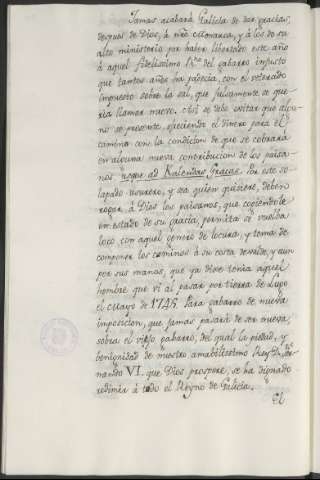 Jamas acabará Galicia de dar gracias,
despues de Dios, á nro Monarca, y á los de su
alto ministerio por haber libertado este año
á aquel fidelisimo Rno del gabarro injusto
que tantos años ha padecia, con el reterado
impuesto sobre la sal, que falsamente se que-
ria llamar nuevo. Asi se debe evitar que algu-
no se presente, ofreciendo el dinero para el
camino con la condicion de que se cobrará
en alguna nueva contribucion de los paisa-
nos, usque ad Kalendas Grecas. Por este so-
lapado usurero, y sea quien quisiere, deben
rogar á Dios los paisanos, que cogiendole
en estado de su gracia, permita se vuelva
loco, con aquel genero de locura, y tema de
componer los caminos á su costa de valde, y aun
por sus manos, que ya dixe tenia aquel
hombre que vi al pasar por tierra de Lugo
el Mayo de 1745. Para gabarro de nueva
imposicion, que jamas pasará de ser nueva,
sobra el viejo gabarro, del qual la piedad, y
benignidad de nuestro amabilissimo Rey Dn Fer-
nando VI. que Dios prospere, se ha dignado
redimir á todo el Reyno de Galicia.
El